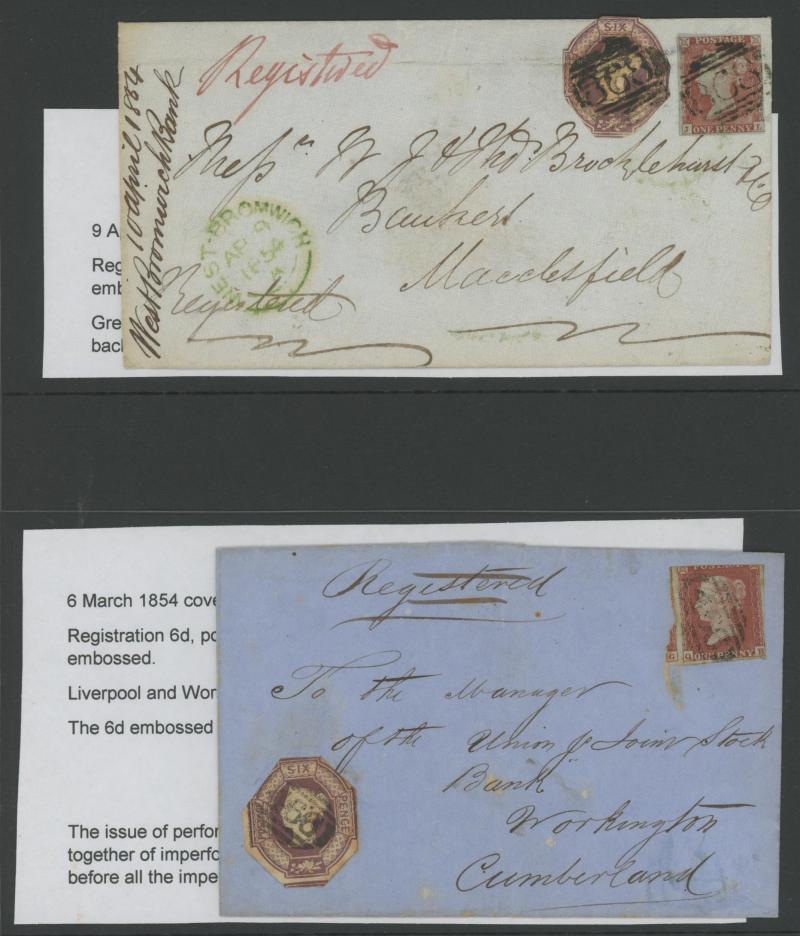 Registered
SIX
868
POSTAGE
ONE PENNY
J L
10 april 1854
West Bromwich Bank
Mess rs W J & Tho s Brocklehurst & Co
Bankers
Macclesfield
Registered
WEST-BROMWICH
AP 9
1854
9 A
Reg
emb
Gre
back
6 March 1854 cove
Registration 6d, po
embossed.
Liverpool and Wor
The 6d embossed
The issue of perfor
together of imperfo
before all the impe
Registered
POSTAGE
ONE PENNY
To the Manager
of the Union & Joint Stock
Bank
Workington
Cumberland
SIX
PENCE